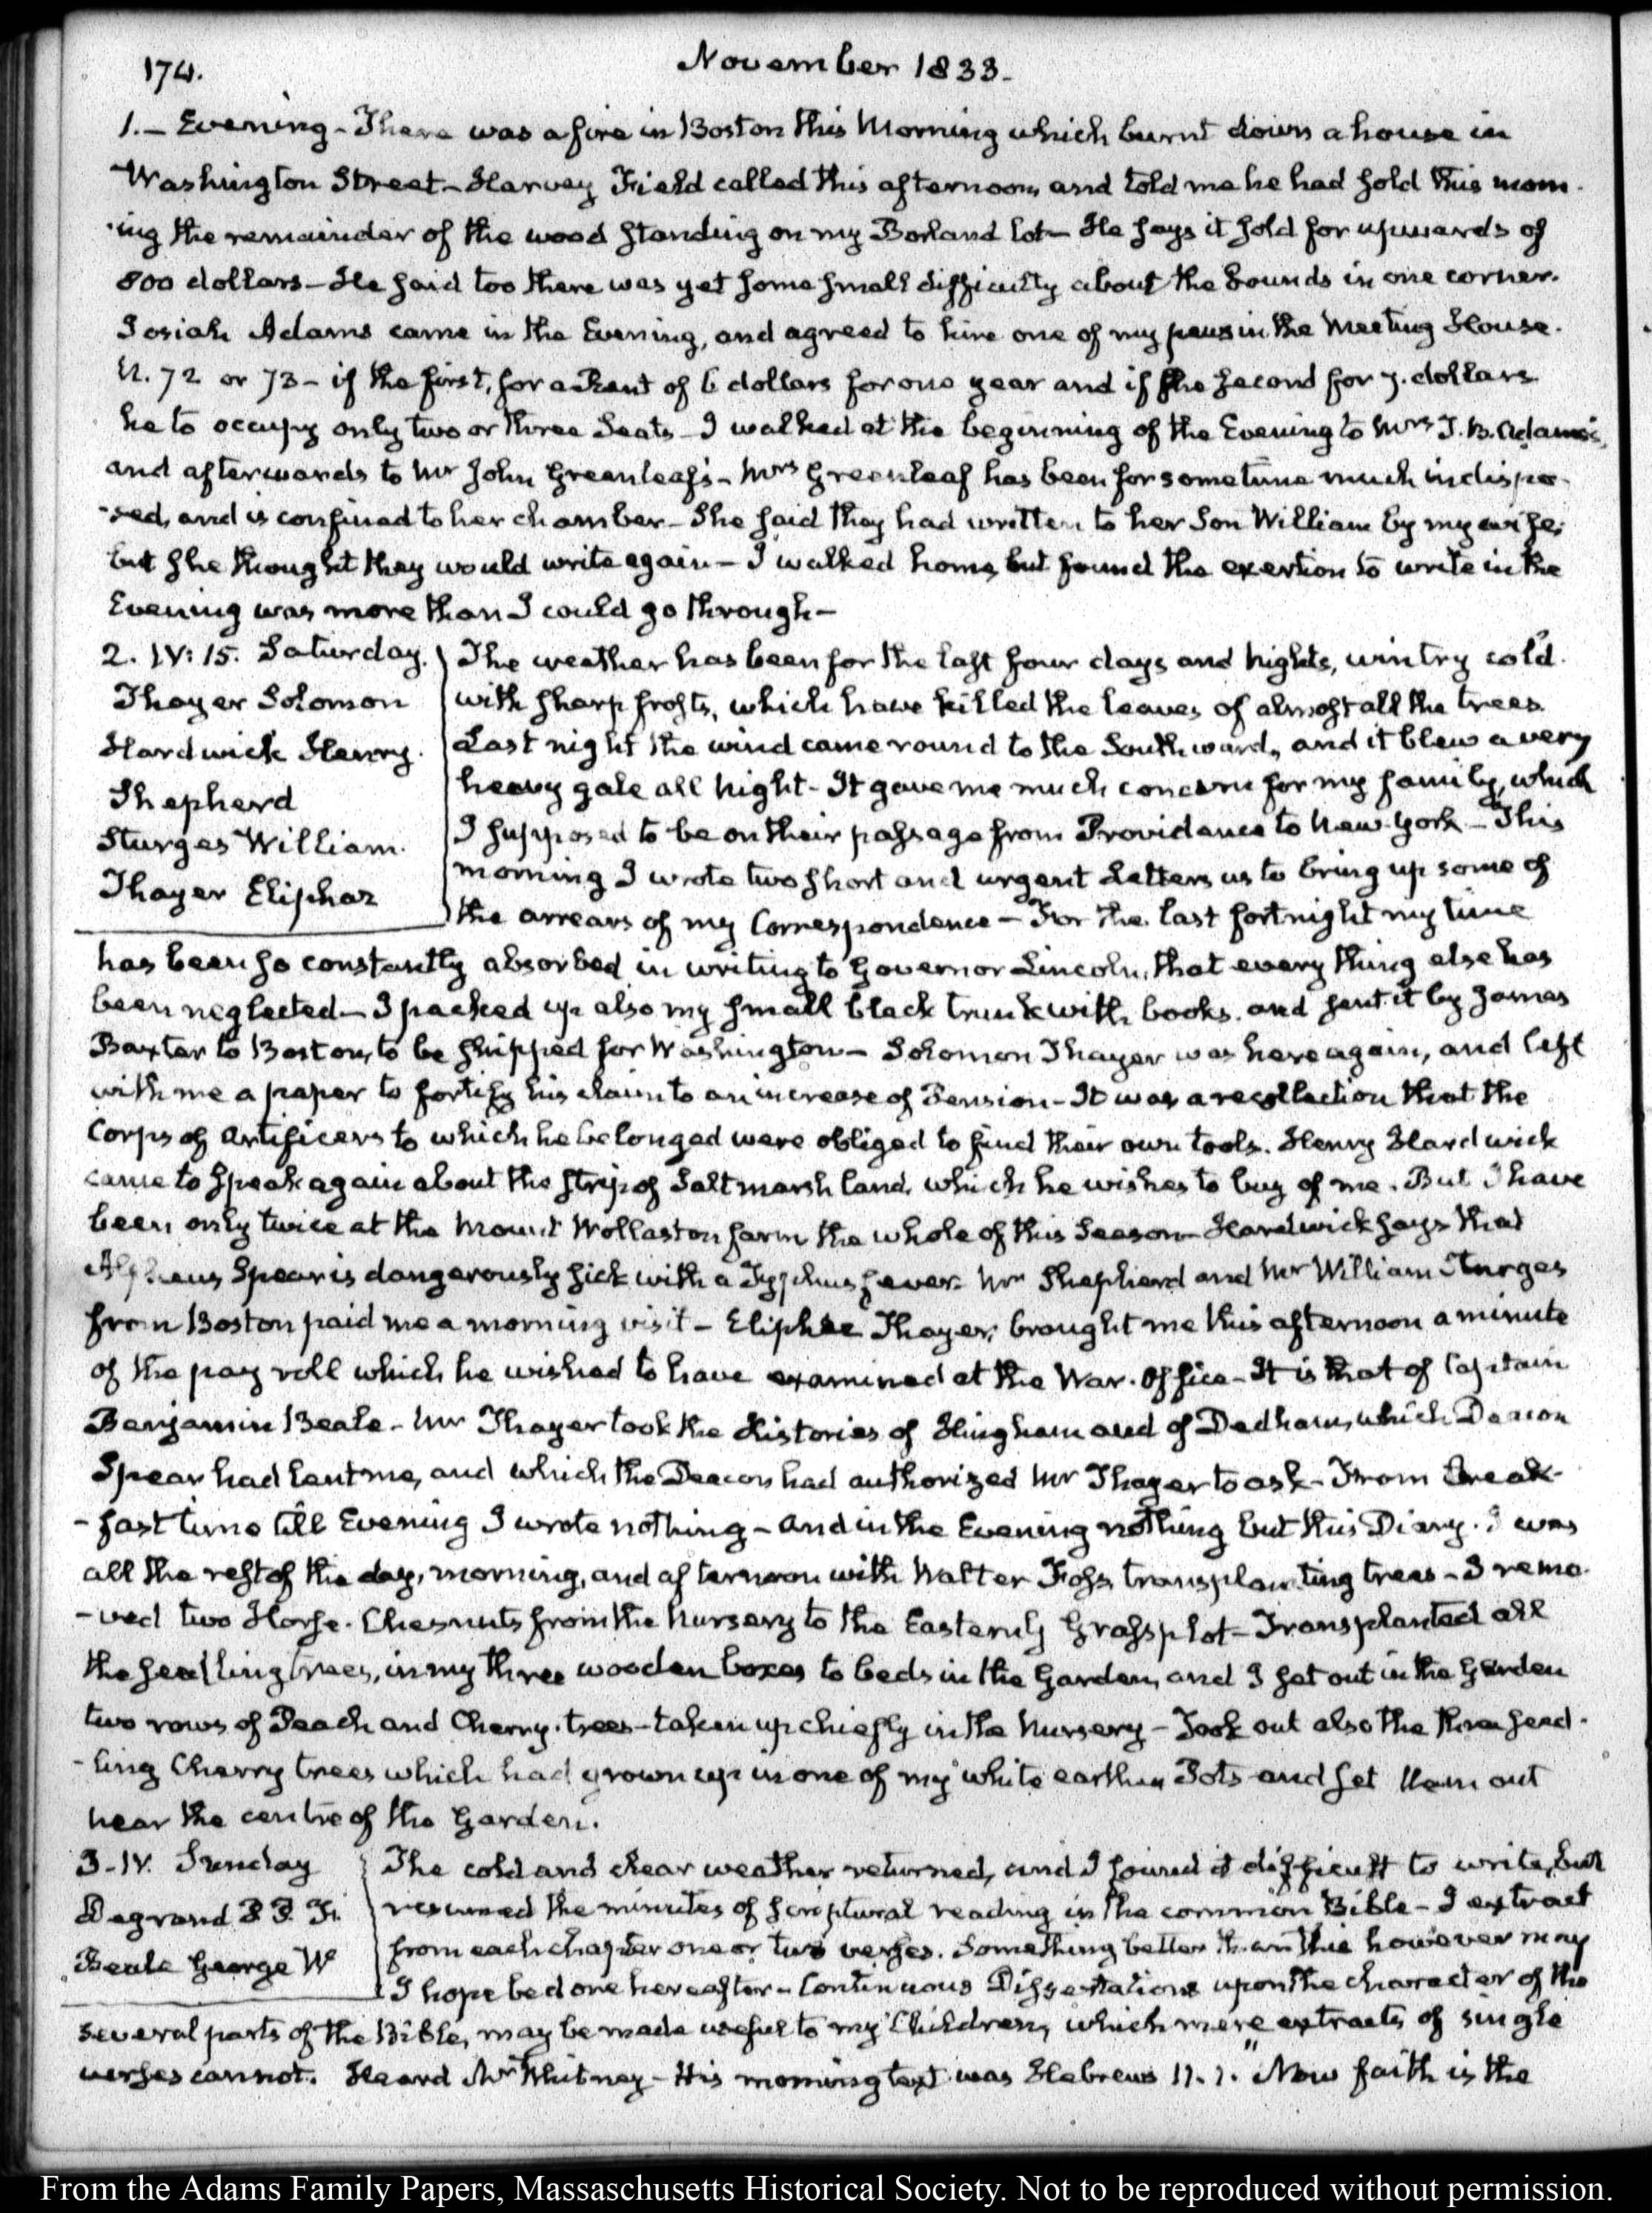 174.
November 1833.
1.— Evening - There was a fire in Boston this Morning which burnt down a house in
Washington Street - Harvey Field called this afternoon, and told me he had sold this morn-
-ing the remainder of the wood standing on my Borland lot - He says it sold for upwards of
800 dollars - He said too there was yet some small difficulty about the bounds in one corner.
Josiah Adams came in the Evening, and agreed to hire one of my pews in the Meeting House.
N. 72 or 73 - if the first, for a Rent of 6 dollars for one year and if the second for 7. dollars
he to occupy only two or three Seats - I walked at the beginning of the Evening to Mrs T. B. Adams's,
and afterwards to Mr John Greenleaf's - Mrs Greenleaf has been for some time much indispo-
-sed, and is confined to her chamber - She said they had written to her Son William by my wife;
but she thought they would write again - I walked home, but found the exertion to write in the
Evening was more than I could go through -
2. IV: 15. Saturday.
Thayer Solomon
Hardwick Henry.
Shepherd
Sturges William.
Thayer Eliphaz
The weather has been for the last four days and nights, wintry cold.
with sharp frosts, which have killed the leaves of almost all the trees.
Last night the wind came round to the Southward, and it blew a very
heavy gale all night - It gave me much concern for my family, which
I supposed to be on their passage from Providence to New-York - This
morning I wrote two short and urgent Letters us to bring up some of
the arrears of my Correspondence - For the last fortnight my time
has been so constantly absorbed in writing to Governor Lincoln, that every thing else has
been neglected - I packed up also my small black trunk with books. and sent it by James
Baxter to Boston, to be shipped for Washington - Solomon Thayer was here again, and left
with me a paper to fortify his claim to an increase of Pension - It was a recollection that the
Corps of Artificers to which he belonged were obliged to find their own tools. Henry Hardwick
came to speak again about the strip of Salt marsh land, which he wishes to buy of me. But I have
been only twice at the Mount Wollaston farm the whole of this Season - Hardwick says that
Alpheus Spear is dangerously sick with a Typhus fever. Mr Shepherd and Mr William Sturges
from Boston paid me a morning visit - Eliphaz Thayer, brought me this afternoon a minute
of the pay roll which he wished to have examined at the War-Office - It is that of Captain
Benjamin Beale - Mr Thayer took the Histories of Hingham and of Dedham, which Deacon
Spear had lent me, and which the Deacon had authorized Mr Thayer to ask - From break-
-fast time till Evening I wrote nothing - and in the Evening nothing but this Diary. I was
all the rest of the day, morning, and afternoon with Walter Foss, transplanting trees - I remo-
-ved two Horse-Chesnuts from the Nursery to the Easterly Grass plot - Transplanted all
the seedling trees, in my three wooden boxes to beds in the Garden, and I set out in the Garden
two rows of Peach and Cherry-trees - taken up chiefly in the Nursery - Took out also the three seed-
-ling Cherry trees which had grown up in one of my white earthen Pots and set them out
near the centre of the Garden.
3. IV. Sunday
Degrand P. P. F.
Beale George W
The cold and clear weather returned, and I found it difficult to write, but
resumed the minutes of scriptural reading in the common Bible - I extract
from each chapter one or two verses. Something better than this however may
I hope be done hereafter - Continuous Dissertations upon the character of the
several parts of the Bible, may be made useful to my Children, which mere extracts of single
verses cannot. Heard Mr Whitney - His morning text was Hebrews 11. 1. "Now faith is the
From the Adams Family Papers, Massachusetts Historical Society. Not to be reproduced without permission.